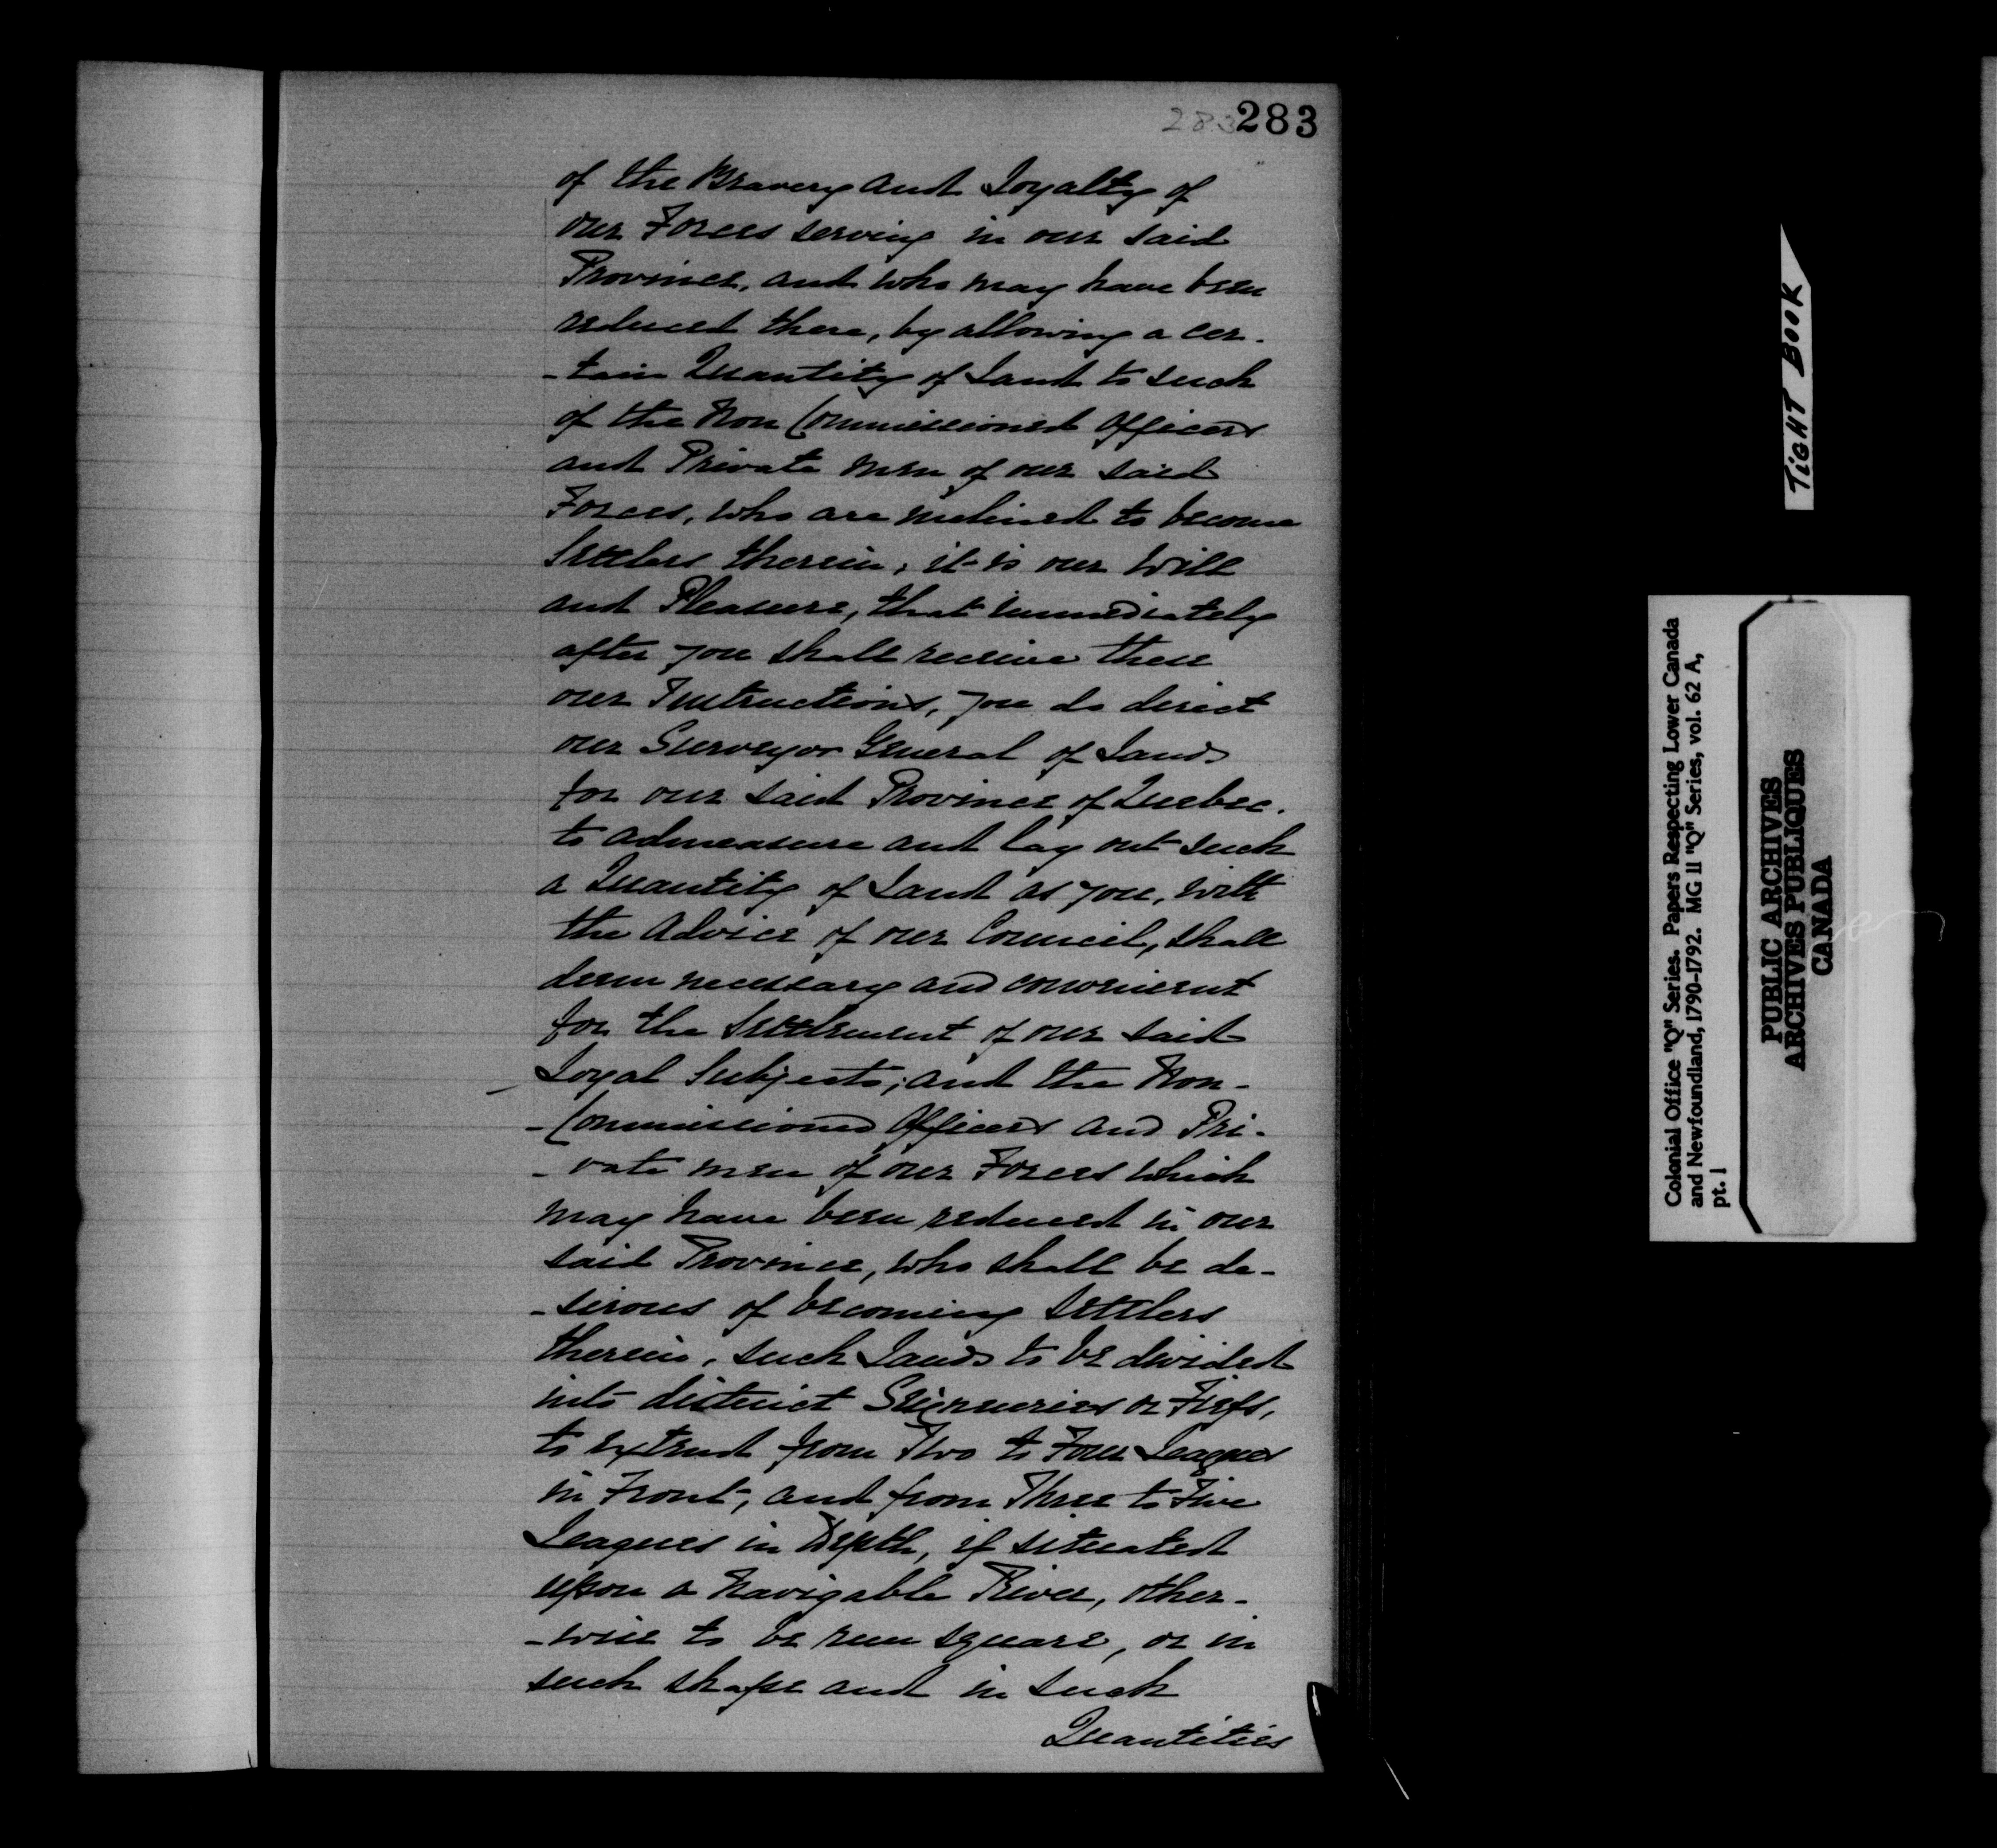 283 283
of the Bravery and Loyalty of
our Forces serving in our said
Province, and who may have been
reduced there, by allowing a cer-
-tain Quantity of Land to such
of the Non Commissioned Officers
and Private Men of our said
Forces, who are inclined to become
Settlers therein, it is our Will
and Pleasure, that immediately
after you shall receive these
our Instructions, you do direct
our Surveyor General of Lands
for our said Province of Quebec.
to admeasure and lay out such
a Quantity of Land as you, with
the Advice of our Council, shall
deem necessary and convenient
for the Settlement of our said
Loyal Subjects; and the Non-
-Commissioned Officers and Pri-
-vate men of our Forces which
may have been reduced in our
said Province, who shall be de-
-sirous of becoming Settlers
therein, such Lands to be divided
into distinct Seigneuries or Fiefs,
to extend from Two to Four Leagues
in Front, and from Three to Five
Leagues in Depth, if situated
upon a Navigable River, other-
-wise to be run square, or in
such shape and in such
Quantities
TIGHT BOOK
Colonial Office "Q" Series. Papers Respecting Lower Canada
and Newfoundland, 1790-1792. MG 11 "Q" Series, vol. 62 A,
pt. 1
PUBLIC ARCHIVES
ARCHIVES PUBLIQUES
CANADA